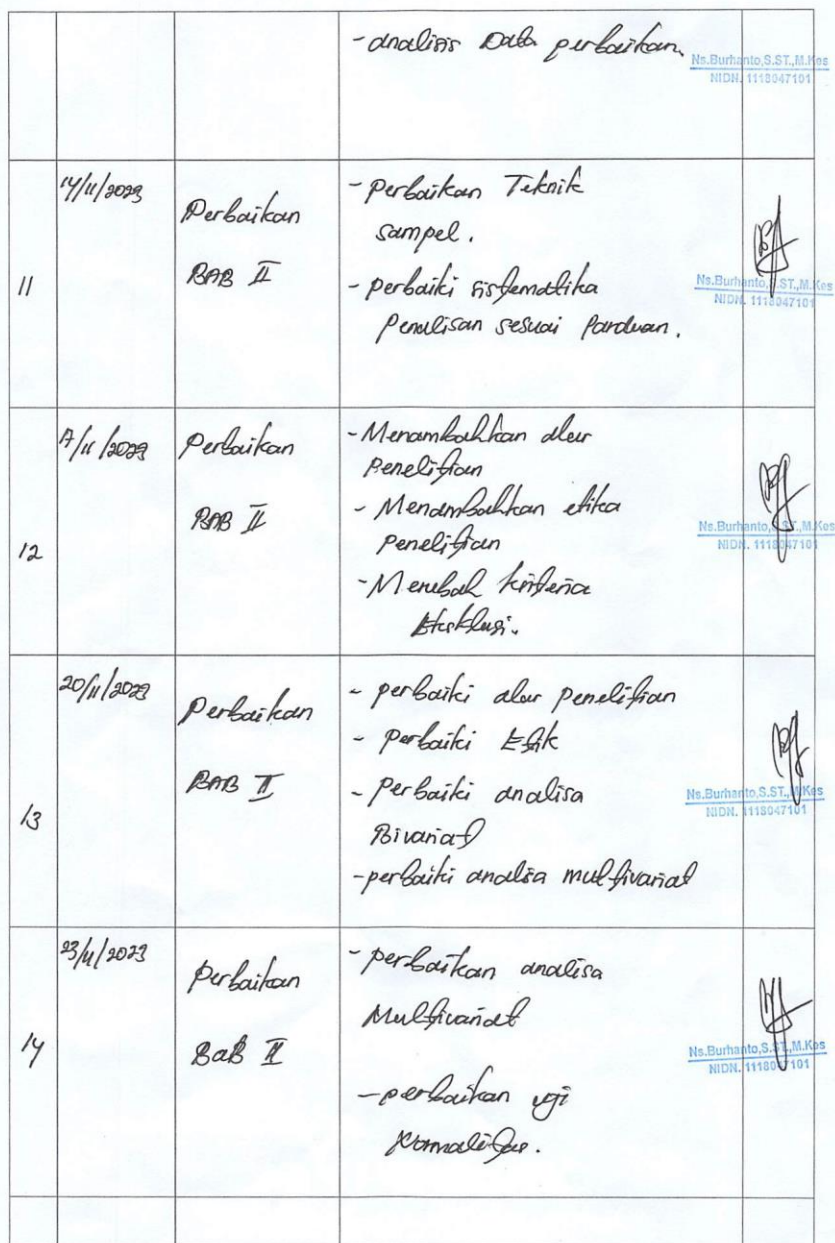 - analisis Data perbaikan.
Ns.Burhanto,S.ST.,M.Kes
NIDN. 1118047101
11
14/11/2023
Perbaikan
BAB II
- perbaikan Teknik
sampel.
- perbaiki sistematika
Penulisan sesuai Panduan.
Ns.Burhanto,S.ST.,M.Kes
NIDN. 1118047101
12
17/11/2023
Perbaikan
BAB II
- Menambahkan alur
Penelitian
- Menambahkan etika
penelitian
- Merubah kriteria
Eksklusi.
Ns.Burhanto,S.ST.,M.Kes
NIDN. 1118047101
13
20/11/2023
Perbaikan
BAB II
- perbaiki alur penelitian
- perbaiki Etik
- Perbaiki analisa
Bivariat
- perbaiki analisa multivariat
Ns.Burhanto,S.ST.,M.Kes
NIDN. 1118047101
14
23/11/2023
Perbaikan
BaB II
- perbaikan analisa
Multivariat
- perbaikan uji
Normalitas.
Ns.Burhanto,S.ST.,M.Kes
NIDN. 1118047101